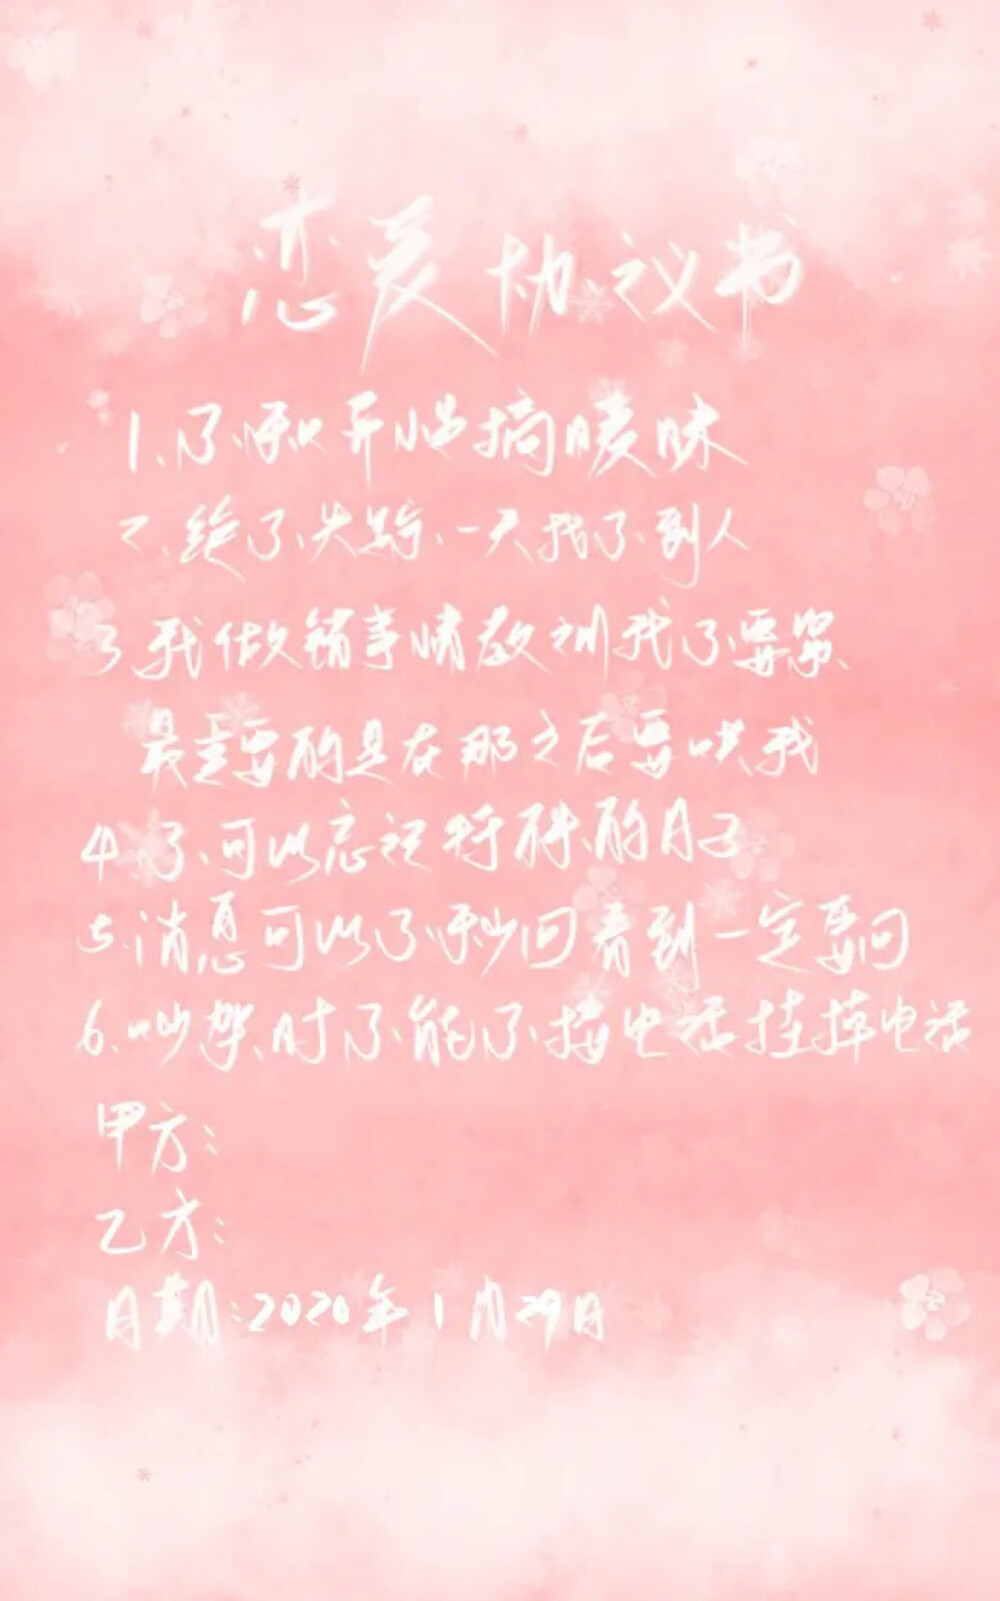 恋爱协议书
1.不和异性搞暧昧
2.绝不失踪、一天找不到人
3.我做错事情教训我不要紧、
最重要的是在那之后要哄我
4.不可以忘记特殊的日子
5.消息可以不秒回看到一定要回
6.吵架时不能不接电话挂掉电话
甲方:
乙方:
日期:2020年1月29日